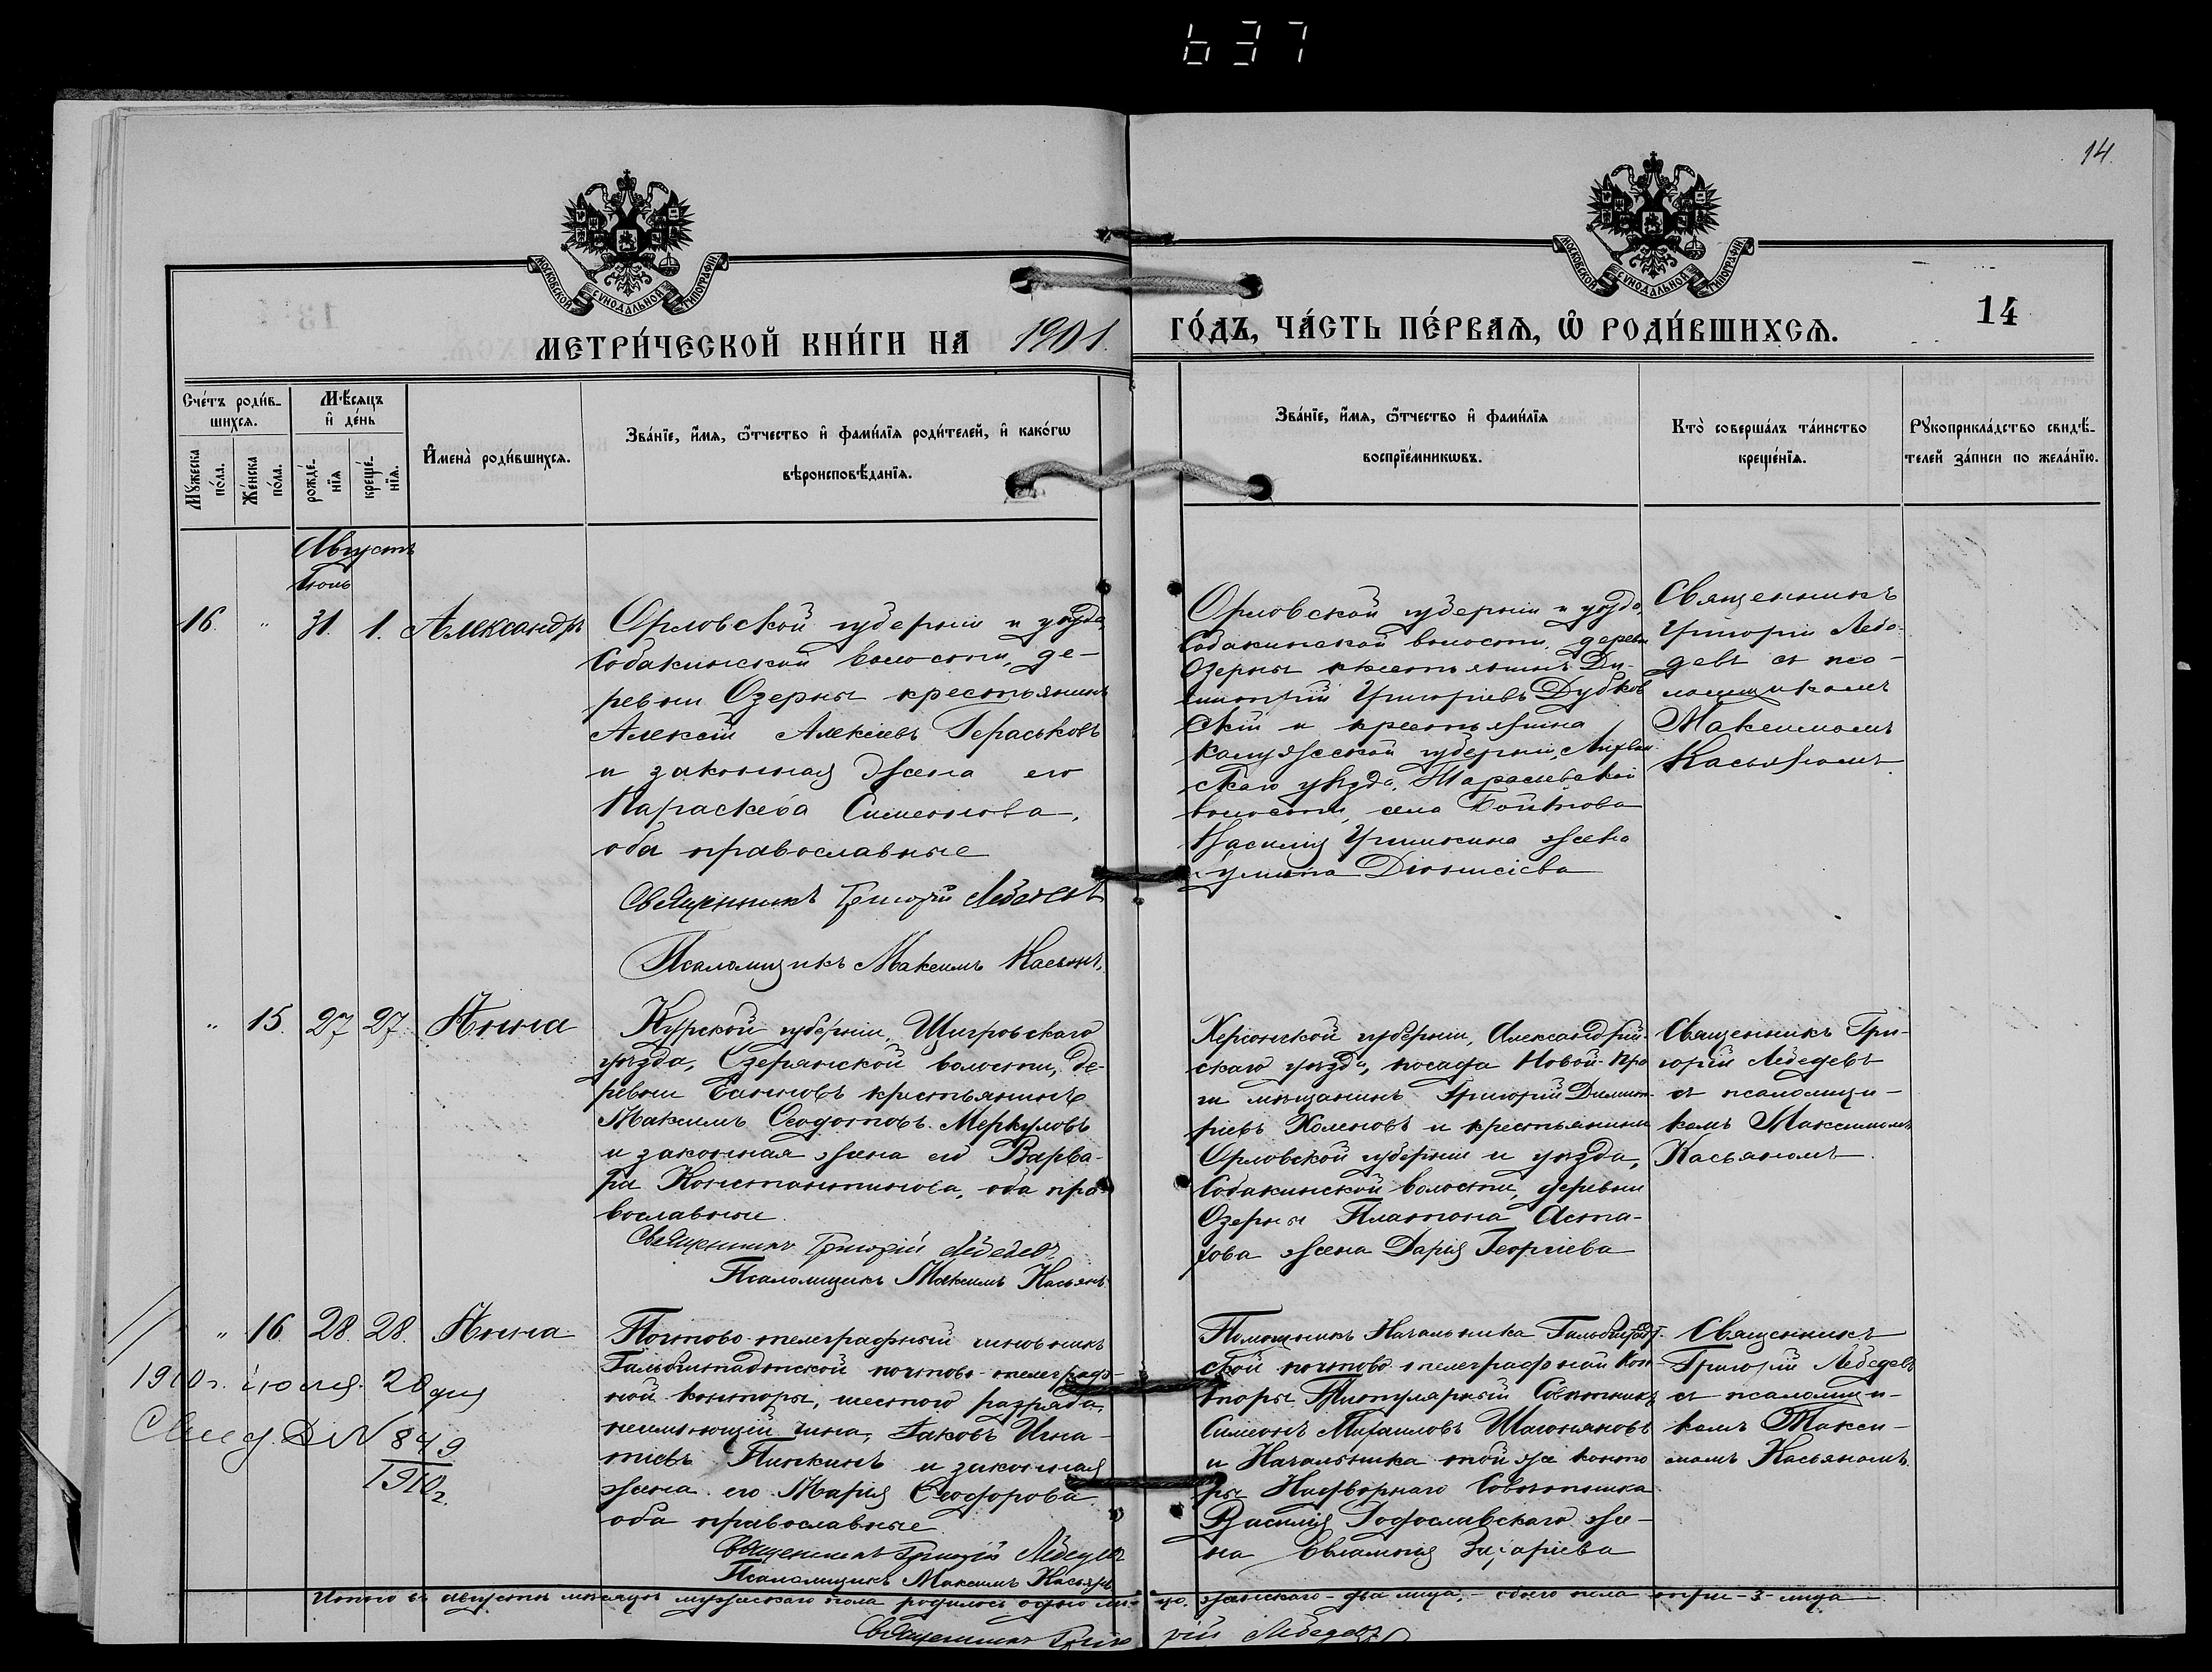 637
14.
МОСКОВСКОЙ СѴНОДАЛЬНОЙ ТИПОГРАФІИ
МОСКОВСКОЙ СѴНОДАЛЬНОЙ ТИПОГРАФІИ
14
МЕТРИ́ЧЕСКОЙ КНИ́ГИ НА 1901. ГО́ДЪ, ЧА́СТЬ ПЕ́РВАѦ, Ѽ РОДИ́ВШИХСѦ.
Сче́тъ роди́в-
шихсѧ.
Мꙋ́жеска по́ла.
Же́нска по́ла.
Мѣ́сѧцъ
и҆ де́нь
рожде́-
нїѧ
креще́-
нїѧ.
И҆мена̀ роди́вшихсѧ.
Зва́нїе, и҆́мѧ, ѻ҆́тчество и҆ фами́лїѧ роди́телей, и҆ како́гѡ
вѣроисповѣ́данїѧ.
Зва́нїе, и҆́мѧ, ѻ҆́тчество и҆ фами́лїѧ
воспрїе́мникѡвъ.
Кто̀ соверша́лъ та́инство
креще́нїѧ.
Рꙋкоприкла́дство свидѣ́-
телей за́писи по жела́нїю.
Августъ
Іюль
16. " 31. 1. Александръ
Орловской губерніи и уѣзда,
Собакинской волости, де-
ревни Озерны крестьянинъ
Алексій Алексіевъ Гераськовъ
и законная жена его
Параскева Симеонова,
оба православные
Священникъ Григорій Лебедевъ
Псаломщикъ Максимъ Касьянъ.
Орловской губерніи и уѣзда,
Собакинской волости, деревни
Озерны крестьянинъ Ди-
митрій Григоріевъ Дубков
скій и крестьянина
Калужской губерніи,
скаго уѣзда,
волости, села
Василія Гришкина жена
Діонисіева
Священникъ
Григорій Лебе-
девъ съ пса-
ломщикомъ
Максимомъ
Касьяномъ.
" 15. 27 27. Анна
Курской губерніи, Щигровскаго
уѣзда, Озерянской волости, де-
ревни крестьянинъ
Максимъ Ѳеодотовъ Меркуловъ
и законная жена его Варва-
ра Константинова, оба пра-
вославные.
Священникъ Григорій Лебедевъ
Псаломщикъ Максимъ Касьянъ
Херсонской губерніи, Александрій-
скаго уѣзда, посада Новой-Пра
ги мѣщанинъ Григорій Димит-
ріевъ Коленовъ и крестьянина
Орловской губерніи и уѣзда,
Собакинской волости, деревни
Озерны Платона Аста-
хова жена Дарія Георгіева
Священникъ Гри-
горій Лебедевъ
съ псаломщи-
комъ Максимомъ
Касьяномъ.
" 16 28. 28. Анна
1910 г. іюля 28 дня
Свид. № 849
1910 г.
Почтово-телеграфный чиновникъ
Гальбштадтской почтово-телеграф-
ной конторы, шестого разряда,
неимѣющій чина, Іаковъ Игна-
тіевъ Пинкинъ и законная
жена его Марія Ѳеодорова
оба православные
Священникъ Григорій Лебедевъ
Псаломщикъ Максимъ Касьянъ
Помощникъ Начальника Гальбштадт-
ской почтово-телеграфной кон-
торы Титулярный Совѣтникъ
Симеонъ Михаиловъ
и Начальника той же конто
ры Надворнаго Совѣтника
Василія Годославскаго же-
на Евлампія Захаріева
Священникъ
Григорій Лебедевъ
съ псаломщи-
комъ Макси-
момъ Касьяномъ.
Итого въ августѣ мѣсяцѣ мужескаго пола родилось одно ли- цо, женскаго - два лица, - обоего пола три - 3 - лица
Священникъ Григо рій Лебедевъ